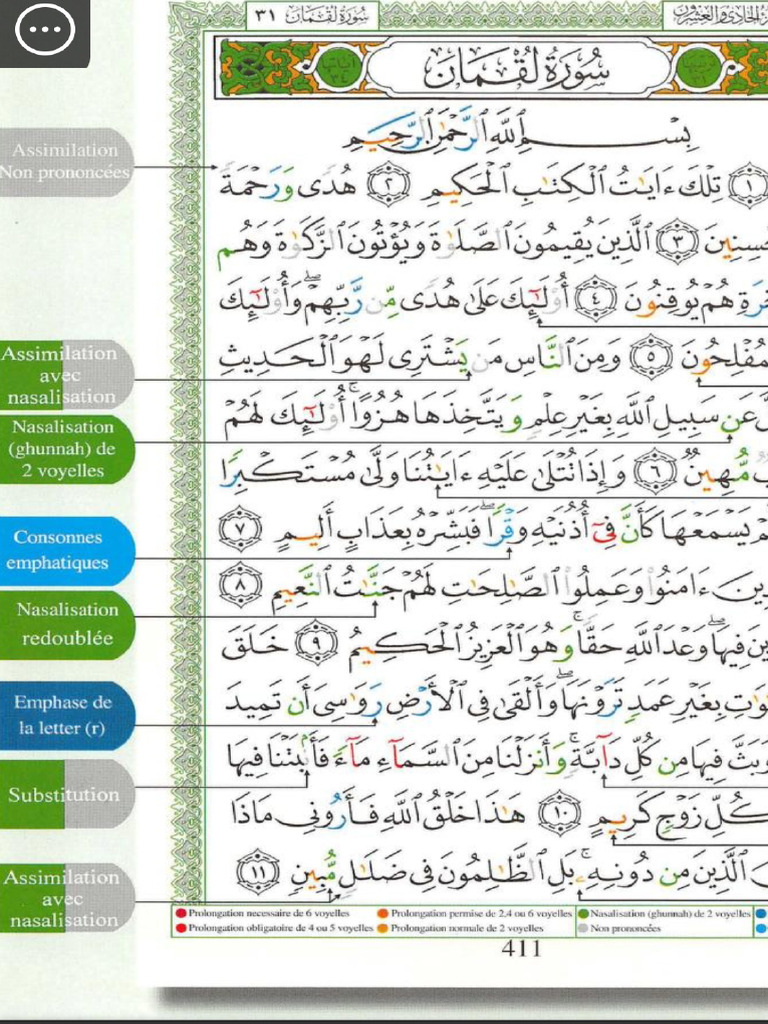 الحادي والعشرون
سورة لقمان ٣١
سُورَةُ لُقْمَانَ
بِسْمِ ٱللَّهِ ٱلرَّحْمَٰنِ ٱلرَّحِيمِ
١ تِلْكَ ءَايَٰتُ ٱلْكِتَٰبِ ٱلْحَكِيمِ ٢ هُدًى وَرَحْمَةً
ٱلَّذِينَ يُقِيمُونَ ٱلصَّلَوٰةَ وَيُؤْتُونَ ٱلزَّكَوٰةَ وَهُم ٣
هُمْ يُوقِنُونَ ٤ أُو۟لَٰٓئِكَ عَلَىٰ هُدًى مِّن رَّبِّهِمْ ۖ وَأُو۟لَٰٓئِكَ
٥ وَمِنَ ٱلنَّاسِ مَن يَشْتَرِى لَهْوَ ٱلْحَدِيثِ
عَن سَبِيلِ ٱللَّهِ بِغَيْرِ عِلْمٍ وَيَتَّخِذَهَا هُزُوًا ۚ أُو۟لَٰٓئِكَ لَهُمْ
مُّهِينٌ ٦ وَإِذَا تُتْلَىٰ عَلَيْهِ ءَايَٰتُنَا وَلَّىٰ مُسْتَكْبِرًا
يَسْمَعْهَا كَأَنَّ فِىٓ أُذُنَيْهِ وَقْرًا ۖ فَبَشِّرْهُ بِعَذَابٍ أَلِيمٍ ٧
ءَامَنُوا۟ وَعَمِلُوا۟ ٱلصَّٰلِحَٰتِ لَهُمْ جَنَّٰتُ ٱلنَّعِيمِ ٨
فِيهَا ۖ وَعْدَ ٱللَّهِ حَقًّا ۚ وَهُوَ ٱلْعَزِيزُ ٱلْحَكِيمُ ٩ خَلَقَ
بِغَيْرِ عَمَدٍ تَرَوْنَهَا ۖ وَأَلْقَىٰ فِى ٱلْأَرْضِ رَوَٰسِىَ أَن تَمِيدَ
وَبَثَّ فِيهَا مِن كُلِّ دَآبَّةٍ ۚ وَأَنزَلْنَا مِنَ ٱلسَّمَآءِ مَآءً فَأَنۢبَتْنَا فِيهَا
كُلِّ زَوْجٍ كَرِيمٍ ١٠ هَٰذَا خَلْقُ ٱللَّهِ فَأَرُونِى مَاذَا
ٱلَّذِينَ مِن دُونِهِۦ ۚ بَلِ ٱلظَّٰلِمُونَ فِى ضَلَٰلٍ مُّبِينٍ ١١
Assimilation
Non prononcées
Assimilation
avec
nasalisation
Nasalisation
(ghunnah) de
2 voyelles
Consonnes
emphatiques
Nasalisation
redoublée
Emphase de
la letter (r)
Substitution
Assimilation
avec
nasalisation
Prolongation necessaire de 6 voyelles
Prolongation permise de 2,4 ou 6 voyelles
Nasalisation (ghunnah) de 2 voyelles
Prolongation obligatoire de 4 ou 5 voyelles
Prolongation normale de 2 voyelles
Non prononcées
411